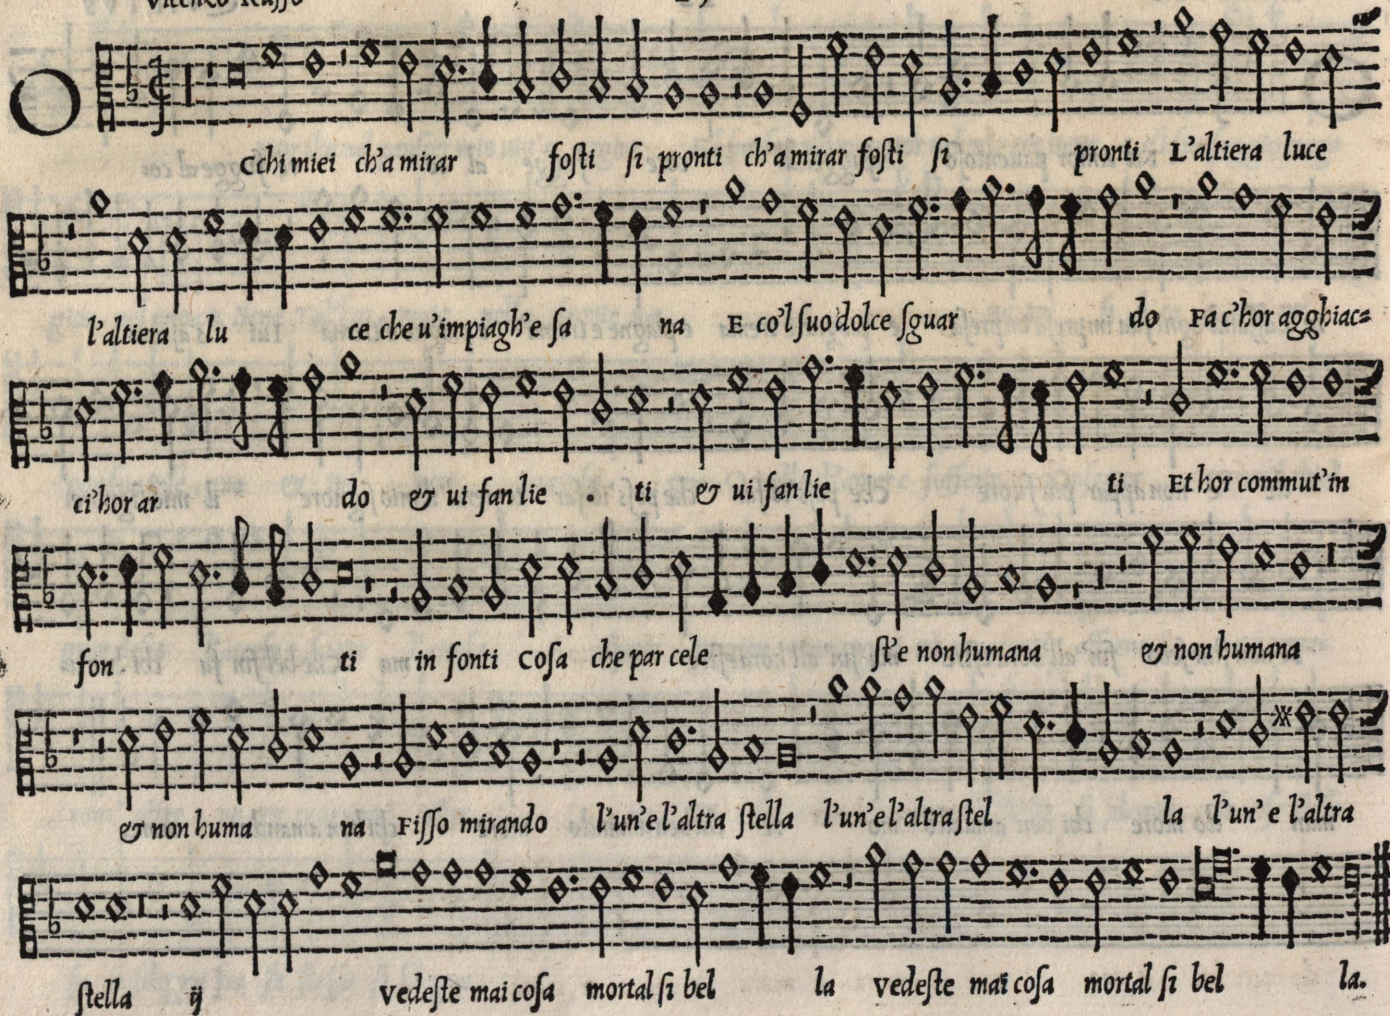 O
Cchi miei ch'a mirar foſti ſi pronti ch'a mirar foſti ſi pronti L'altiera luce
l'altiera lu ce che u'impiagh'e ſa na E co'l ſuo dolce ſguar do Fa c'hor agghiac=
ci'hor ar do & ui fan lie . ti & ui fan lie ti Et hor commut'in
fon ti in fonti Coſa che par cele ſt'e non humana & non humana
& non huma na Fiſſo mirando l'un'e l'altra ſtella l'un'e l'altra ſtel la l'un'e l'altra
ſtella ij vedeſte mai coſa mortal ſi bel la vedeſte mai coſa mortal ſi bel la.